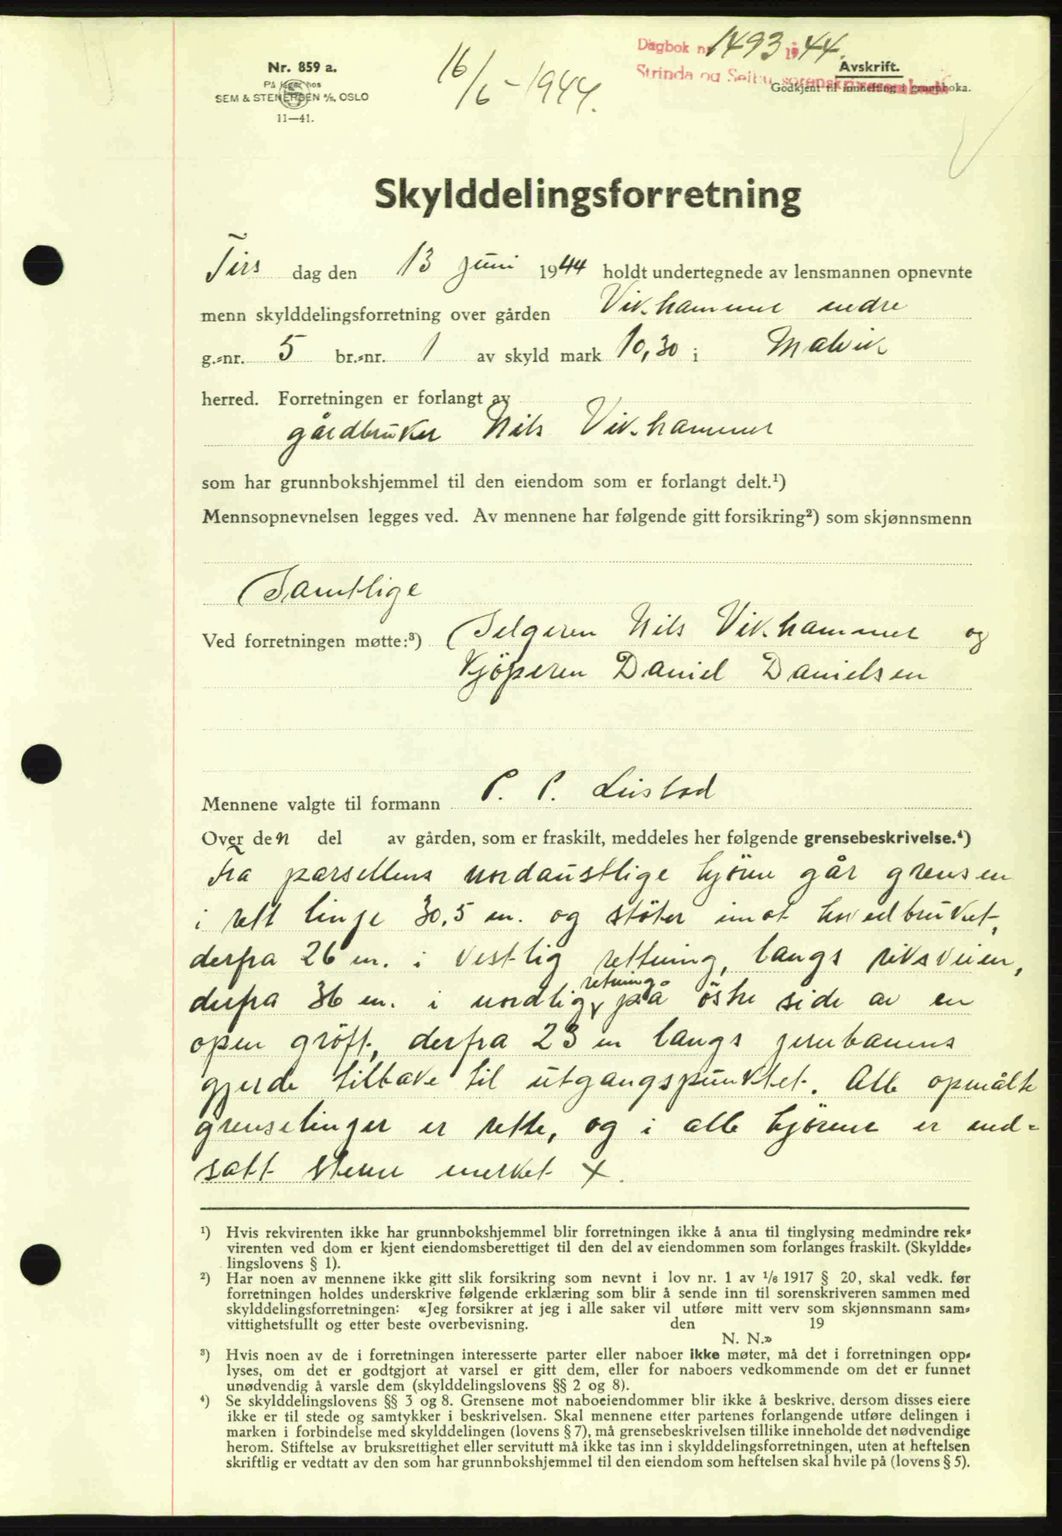 Nr. 859 a.
På lager hos
SEM & STENERSEN A/S, OSLO
11—41.
16/6 - 1944.
Dagbok nr. 1493 1944.
Strinda og Selbu sorenskriverembede
Avskrift.
Godkjent til innhefting i grunnboka.
Skylddelingsforretning
Tirs dag den 13 juni 1944 holdt undertegnede av lensmannen opnevnte
menn skylddelingsforretning over gården Vikhammer nedre
g.-nr. 5 br.-nr. 1 av skyld mark 10,30 i Malvik
herred. Forretningen er forlangt av
gårdbruker Nils Vikhammer
som har grunnbokshjemmel til den eiendom som er forlangt delt.¹)
Mennsopnevnelsen legges ved. Av mennene har følgende gitt forsikring²) som skjønnsmenn
Samtlige
Ved forretningen møtte:³) Selgeren Nils Vikhammer og
Kjöperen Daniel Danielsen
Mennene valgte til formann P. P. Leistad
Over den del av gården, som er fraskilt, meddeles her følgende grensebeskrivelse.⁴)
Fra parsellens nordaustlige hjörne går grensen
i rett linje 30,5 m. og stöter imot hovedbruket,
derfra 26 m. i vestlig rettning, langs riksveien,
derfra 36 m. i nordlig retning på östre side av en
open gröft, derfra 23 m langs jernbanens
gjerde tilbake til utgangspunktet. Alle opmålte
grenselinjer er rette, og i alle hjörner er ned-
satt stener merket X.
¹) Hvis rekvirenten ikke har grunnbokshjemmel blir forretningen ikke å anta til tinglysing medmindre rek-
virenten ved dom er kjent eiendomsberettiget til den del av eiendommen som forlanges fraskilt. (Skyldde-
lingslovens § 1).
²) Har noen av mennene ikke gitt slik forsikring som nevnt i lov nr. 1 av 1/6 1917 § 20, skal vedk. før
forretningen holdes underskrive følgende erklæring som blir å sende inn til sorenskriveren sammen med
skylddelingsforretningen: «Jeg forsikrer at jeg i alle saker vil utføre mitt verv som skjønnsmann sam-
vittighetsfullt og etter beste overbevisning. den 19
N. N.»
³) Hvis noen av de i forretningen interesserte parter eller naboer ikke møter, må det i forretningen opp-
lyses, om det er godtgjort at varsel er gitt dem, eller for naboers vedkommende om det er funnet
unødvendig å varsle dem (skylddelingslovens §§ 2 og 8).
⁴) Se skylddelingslovens §§ 3 og 8. Grensene mot naboeiendommer blir ikke å beskrive, dersom disses eiere
ikke er til stede og samtykker i beskrivelsen. Skal mennene etter partenes forlangende utføre delingen i
marken i forbindelse med skylddelingen (lovens § 7), må grensebeskrivelsen tillike inneholde det nødvendige
herom. Stiftelse av bruksrettighet eller servitutt må ikke tas inn i skylddelingsforretningen, uten at heftelsen
skriftlig er vedtatt av den som har grunnbokshjemmel til den eiendom som heftelsen skal hvile på (lovens § 5).